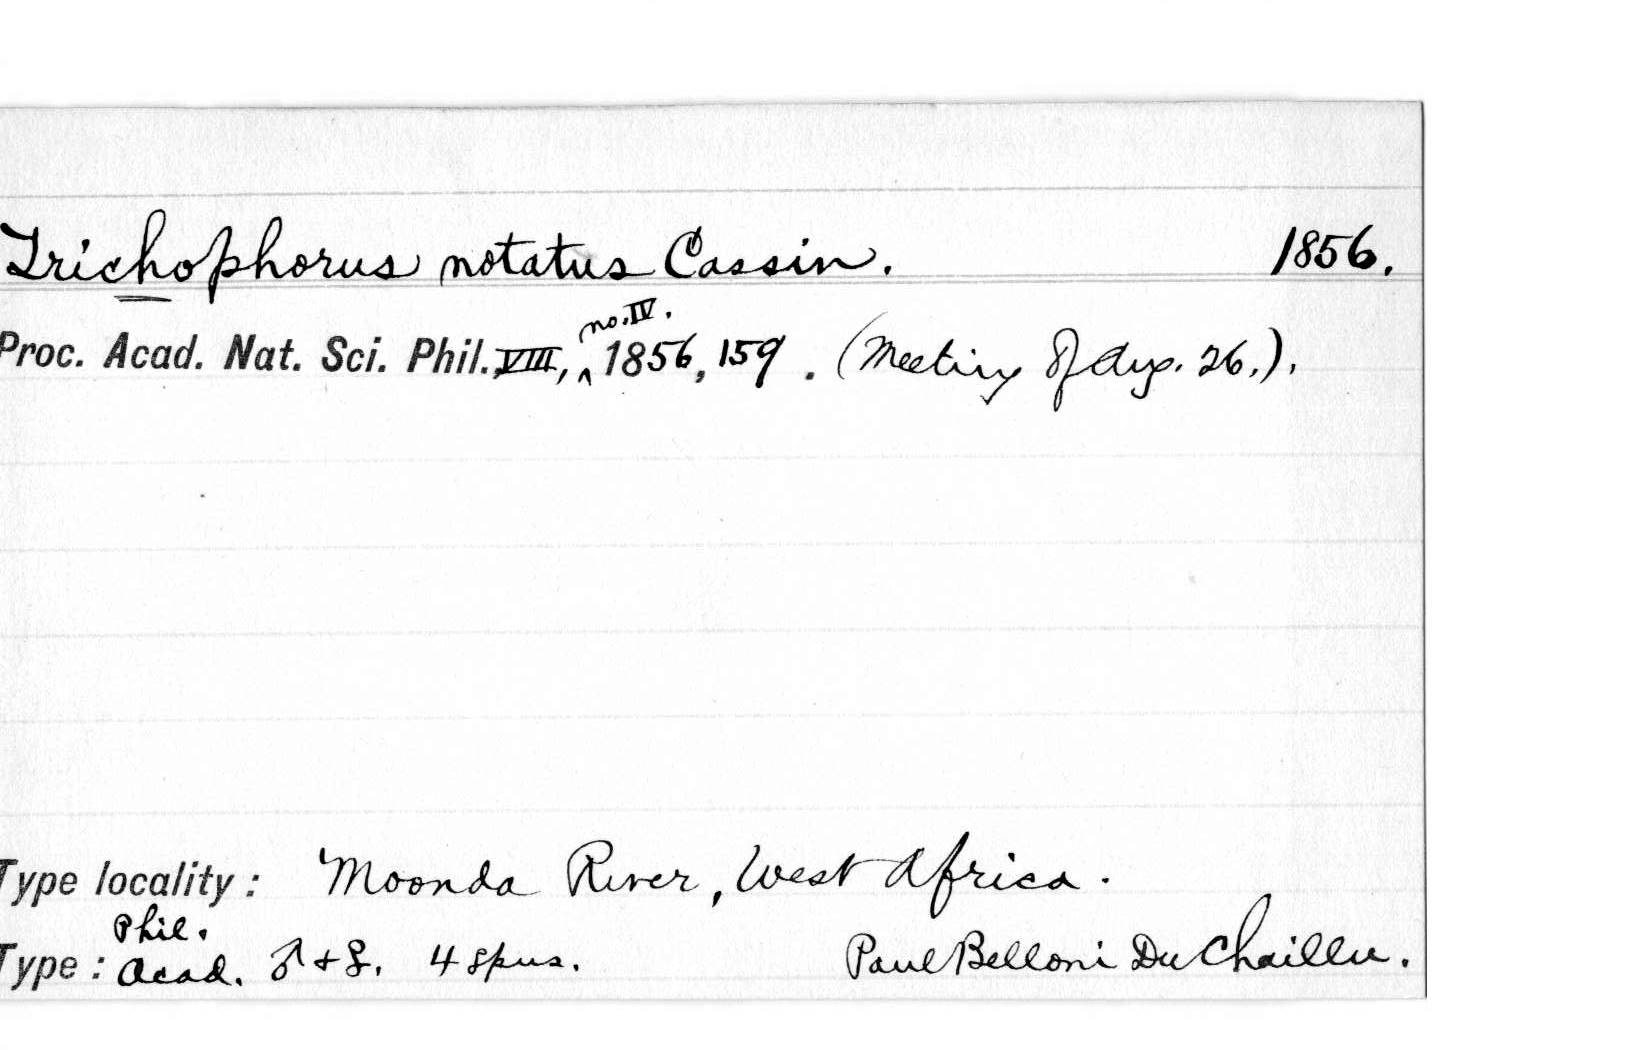 Trichophorus notatus Cassin. 1856.
no. IV.
Proc. Acad. Nat. Sci. Phil. VIII, ^ 1856, 159. (Meeting of Aug. 26.).
Type locality: Moonda River, West Africa.
Phil.
Type: Acad. ♂ + ♀. 4 spms. Paul Belloni Du Chaillu.